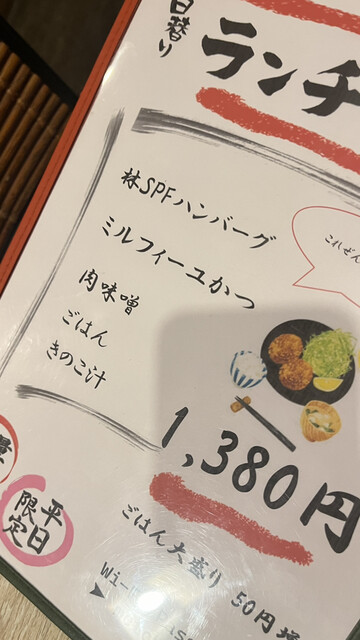 日替り
ランチ
これぜん
林SPFハンバーグ
ミルフィーユかつ
肉味噌
ごはん
きのこ汁
1,380円
平日
限定
ごはん大盛り 50円